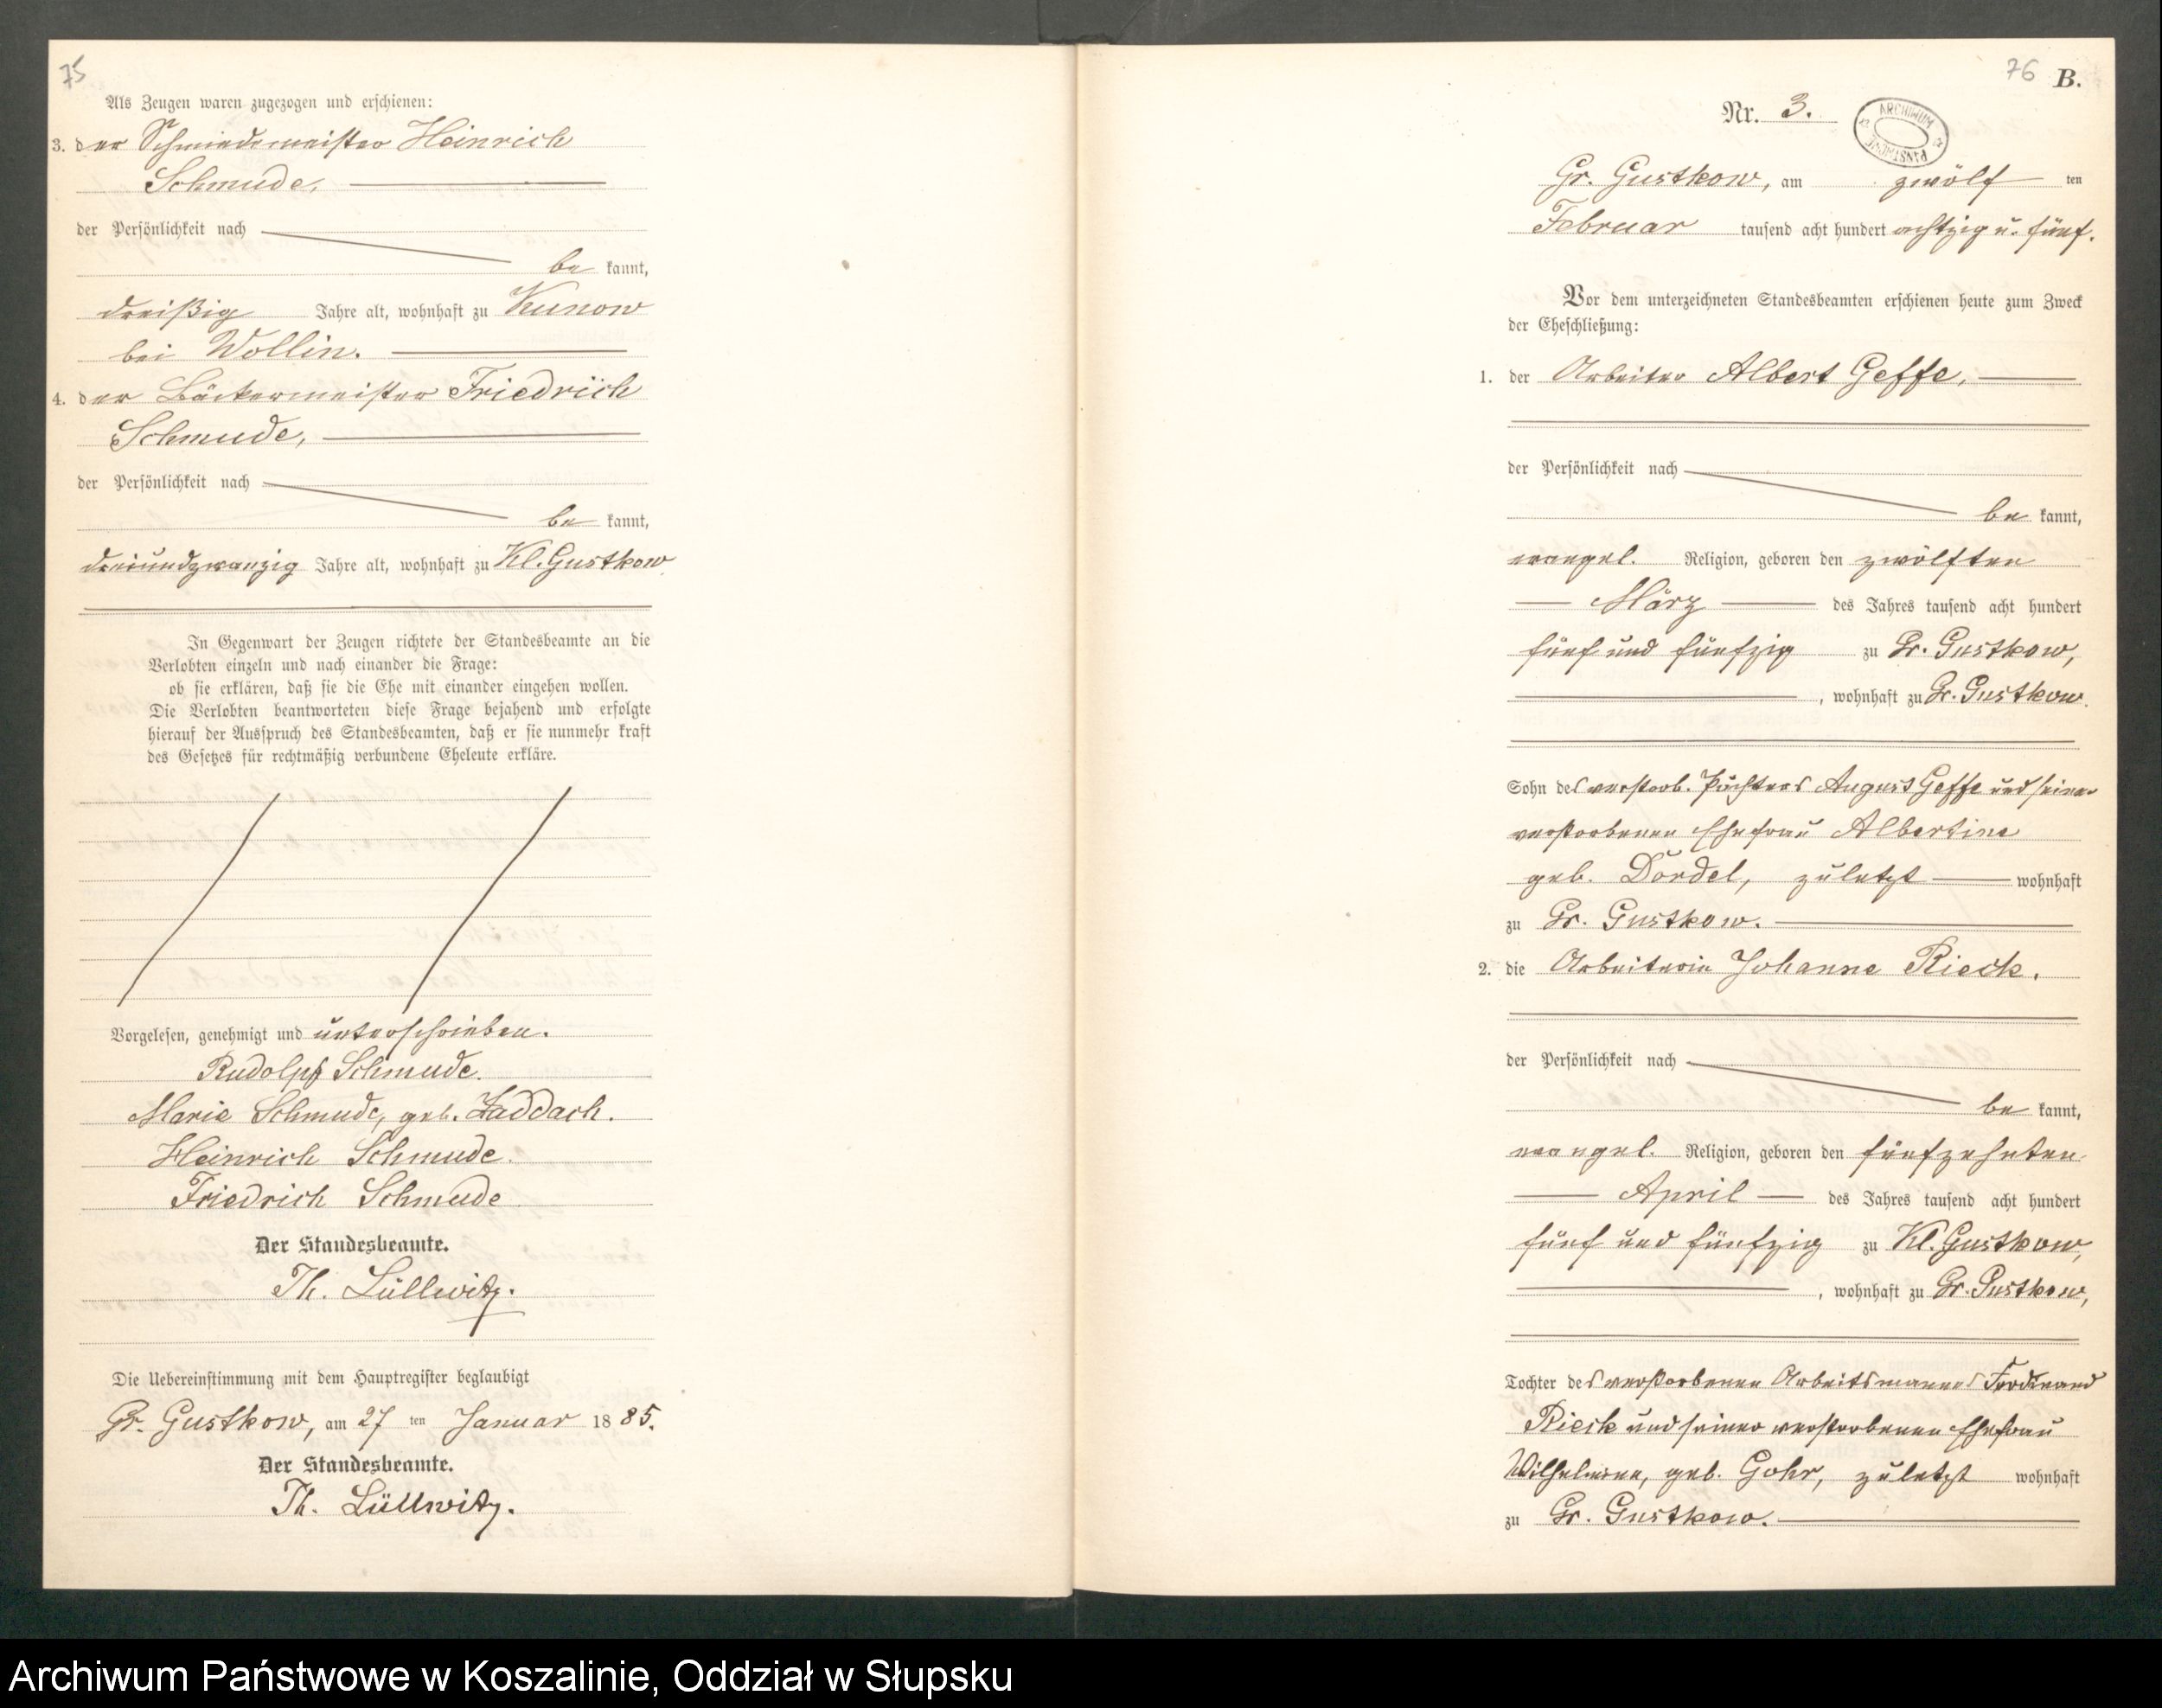 75
Als Zeugen waren zugezogen und erschienen:
3. der Schmiedemeister Heinrich
Schmude,
der Persönlichkeit nach
be kannt,
dreißig Jahre alt, wohnhaft zu Kunow
bei Wollin.
4. der Bäckermeister Friedrich
Schmude,
der Persönlichkeit nach
be kannt,
dreiundzwanzig Jahre alt, wohnhaft zu Kl. Gustkow
In Gegenwart der Zeugen richtete der Standesbeamte an die
Verlobten einzeln und nach einander die Frage:
ob sie erklären, daß sie die Ehe mit einander eingehen wollen.
Die Verlobten beantworteten diese Frage bejahend und erfolgte
hierauf der Ausspruch des Standesbeamten, daß er sie nunmehr kraft
des Gesetzes für rechtmäßig verbundene Eheleute erkläre.
Vorgelesen, genehmigt und unterschrieben.
Rudolph Schmude.
Marie Schmude, geb. Zaddach.
Heinrich Schmude.
Friedrich Schmude
Der Standesbeamte.
Th. Lüllwitz.
Die Uebereinstimmung mit dem Hauptregister beglaubigt
Gr. Gustkow, am 27 ten Januar 1885.
Der Standesbeamte.
Th. Lüllwitz.
76 B.
Nr. 3.
ARCHIWUM PAŃSTWOWE
Gr. Gustkow, am zwölf ten
Februar tausend acht hundert achtzig u. fünf.
Vor dem unterzeichneten Standesbeamten erschienen heute zum Zweck
der Eheschließung:
1. der Arbeiter Albert Geffe,
der Persönlichkeit nach
be kannt,
evangel. Religion, geboren den zwölften
März des Jahres tausend acht hundert
fünf und fünfzig zu Gr. Gustkow,
, wohnhaft zu Gr. Gustkow.
Sohn des verstorb. Pächters August Geffe und seiner
verstorbenen Ehefrau Albertine
geb. Dördel, zuletzt wohnhaft
zu Gr. Gustkow.
2. die Arbeiterin Johanne Rieck.
der Persönlichkeit nach
be kannt,
evangel. Religion, geboren den fünfzehnten
April des Jahres tausend acht hundert
fünf und fünfzig zu Kl. Gustkow,
, wohnhaft zu Gr. Gustkow,
Tochter des verstorbenen Arbeitsmannes Ferdinand
Rieck und seiner verstorbenen Ehefrau
Wilhelmine, geb. Gohr, zuletzt wohnhaft
zu Gr. Gustkow.
Archiwum Państwowe w Koszalinie, Oddział w Słupsku